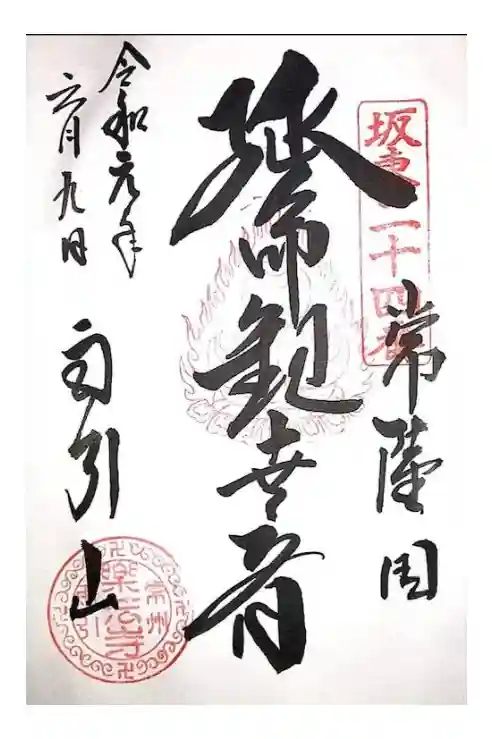 坂東二十四番
常陸国
延命観世音
令和元年
六月九日
雨引山
常州
樂法寺